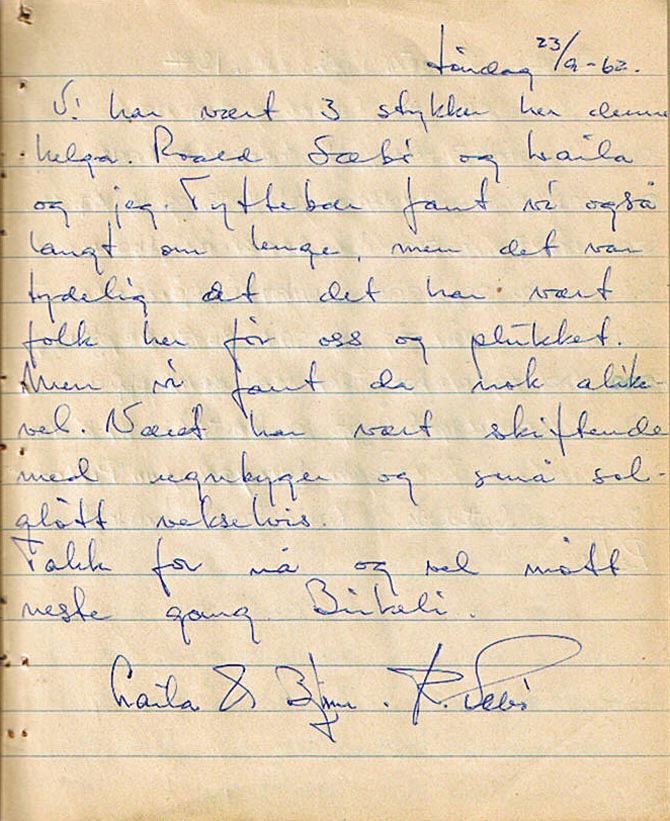 Søndag 23/9-62.
Vi har vært 3 stykker her denne
helga. Roald Sæbö og Laila
og jeg. Tyttebær fant vi også
langt om lenge, men det var
tydelig at det har vært
folk her før oss og plukket.
Men vi fant da nok alike-
vel. Været har vært skiftende
med regnbyger og små sol-
glött vekselvis.
Takk for nå og vel mött
neste gang Birkeli.
Laila & Bjørn. R. Sæbö